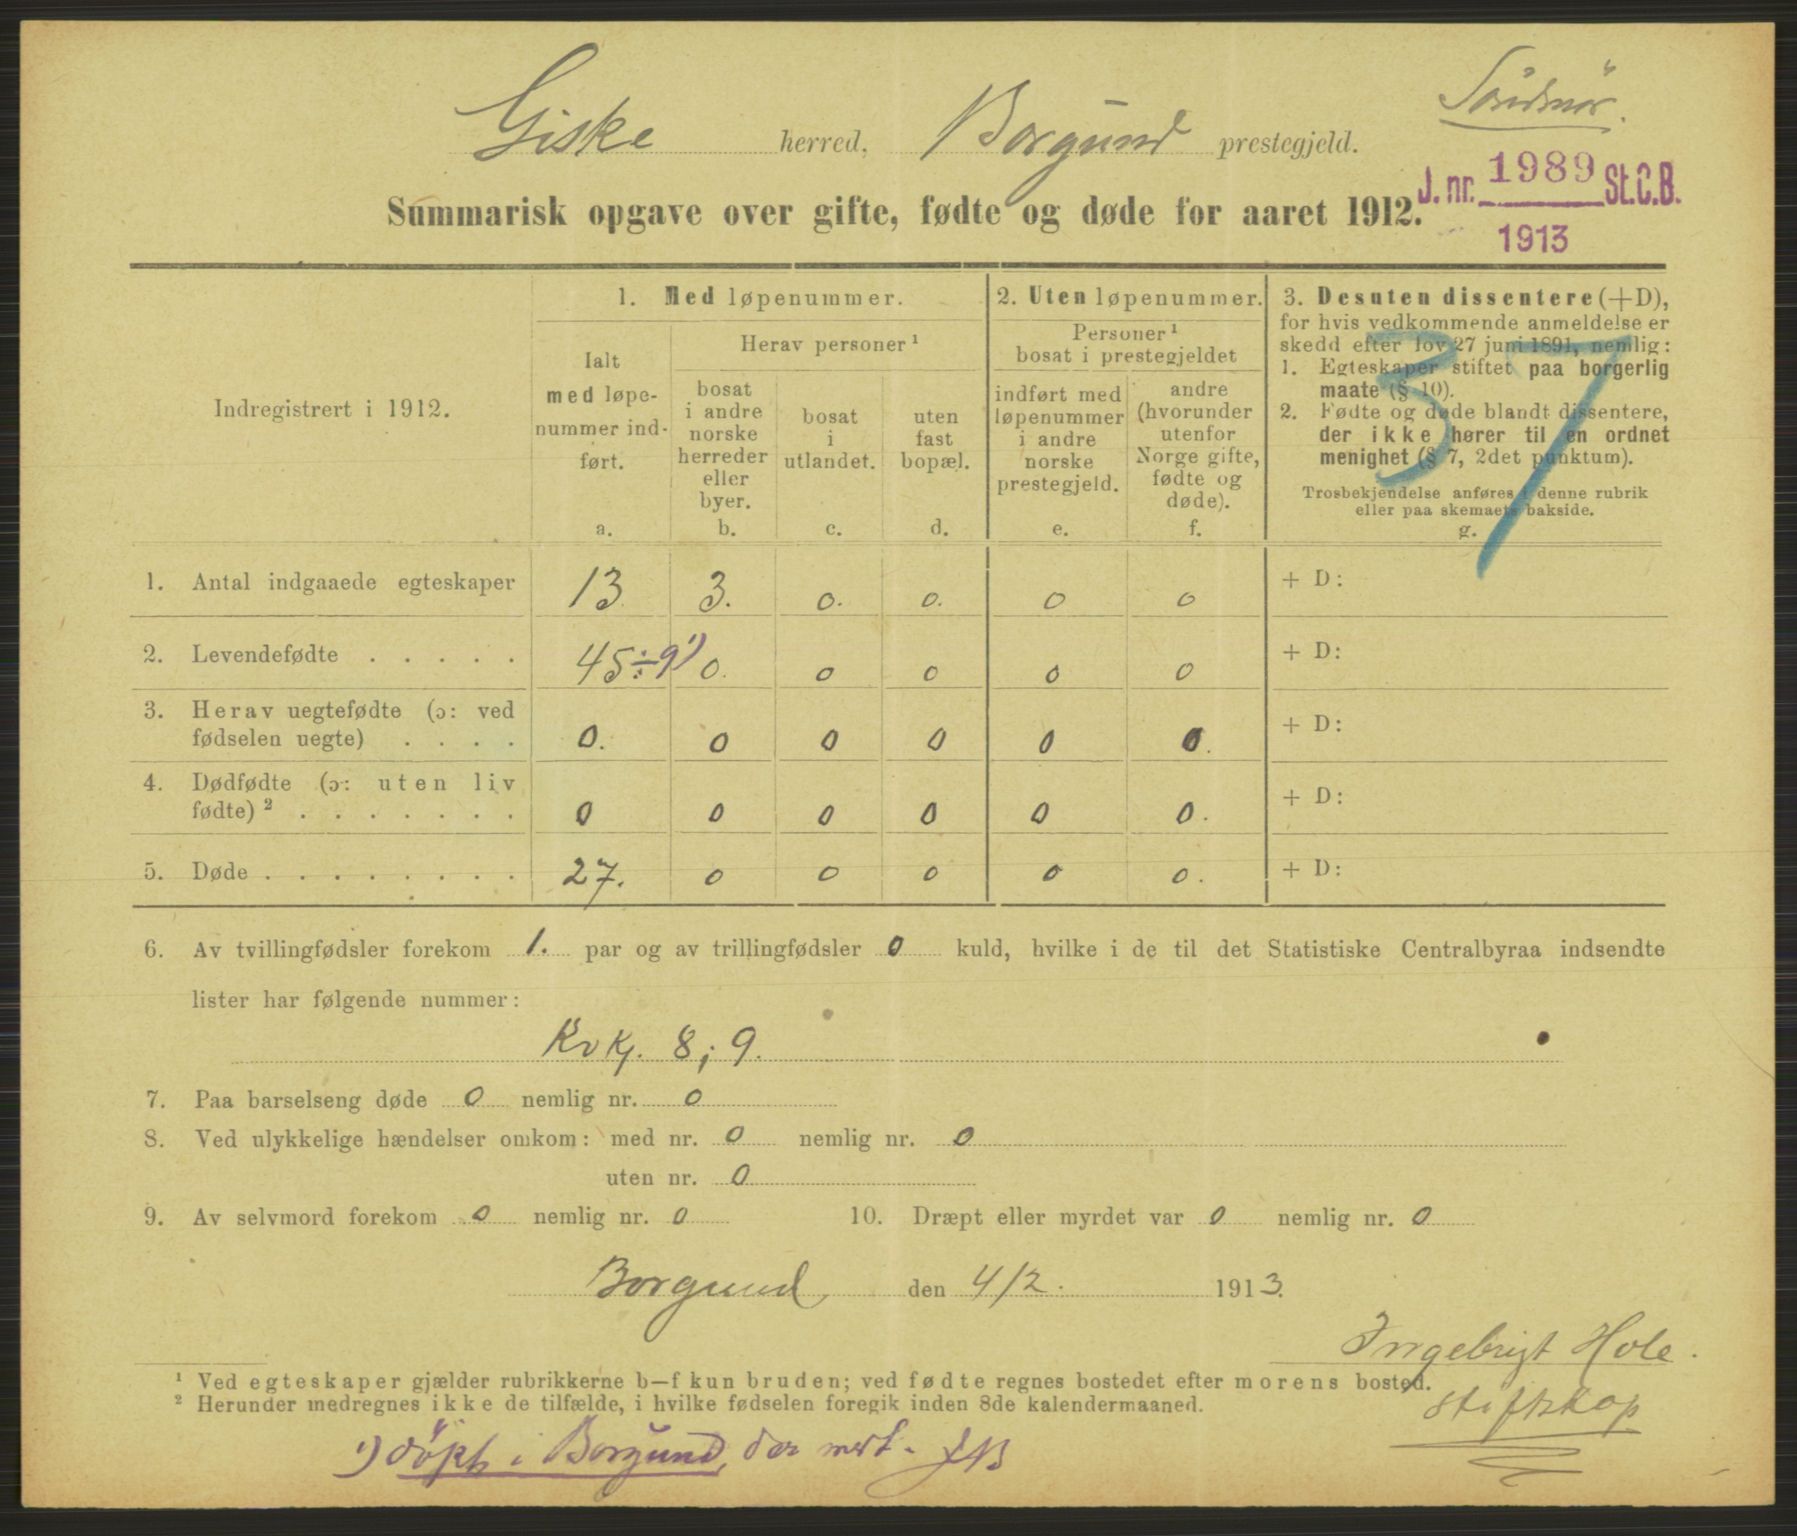 Giske herred, Borgund prestegjeld.
Søndmør.
Summarisk opgave over gifte, fødte og døde for aaret 1912.
J. nr. 1989 St.C.B.
1913
37
Indregistrert i 1912.
1. Med løpenummer.
Ialt
med løpe-
nummer ind-
ført.
a.
Herav personer¹
bosat
i andre
norske
herreder
eller
byer.
b.
bosat
i
utlandet.
c.
uten
fast
bopæl.
d.
2. Uten løpenummer.
Personer¹
bosat i prestegjeldet
indført med
løpenummer
i andre
norske
prestegjeld.
e.
andre
(hvorunder
utenfor
Norge gifte,
fødte og
døde).
f.
3. Desuten dissentere (+D),
for hvis vedkommende anmeldelse er
skedd efter lov 27 juni 1891, nemlig:
1. Egteskaper stiftet paa borgerlig
maate (§ 10).
2. Fødte og døde blandt dissentere,
der ikke hører til en ordnet
menighet (§ 7, 2det punktum).
Trosbekjendelse anføres i denne rubrik
eller paa skemaets bakside.
g.
1. Antal indgaaede egteskaper 13 3. 0. 0. 0 0 + D:
2. Levendefødte . . . . . 45÷9¹) 0. 0 0 0 0 + D:
3. Herav uegtefødte (ɔ: ved
fødselen uegte) . . . . 0. 0 0 0 0 0. + D:
4. Dødfødte (ɔ: uten liv
fødte)² . . . . . . . 0 0 0 0 0 0. + D:
5. Døde . . . . . . . . . 27. 0 0 0 0 0. + D:
6. Av tvillingfødsler forekom 1. par og av trillingfødsler 0 kuld, hvilke i de til det Statistiske Centralbyraa indsendte
lister har følgende nummer:
Kvkj. 8; 9.
7. Paa barselseng døde 0 nemlig nr. 0
8. Ved ulykkelige hændelser omkom: med nr. 0 nemlig nr. 0
uten nr. 0
9. Av selvmord forekom 0 nemlig nr. 0 10. Dræpt eller myrdet var 0 nemlig nr. 0
Borgund den 4/2. 1913.
Ingebrigt Hole.
stiftskap
¹ Ved egteskaper gjælder rubrikkerne b—f kun bruden; ved fødte regnes bostedet efter morens bosted.
² Herunder medregnes ikke de tilfælde, i hvilke fødselen foregik inden 8de kalendermaaned.
¹) døpt i Borgund,